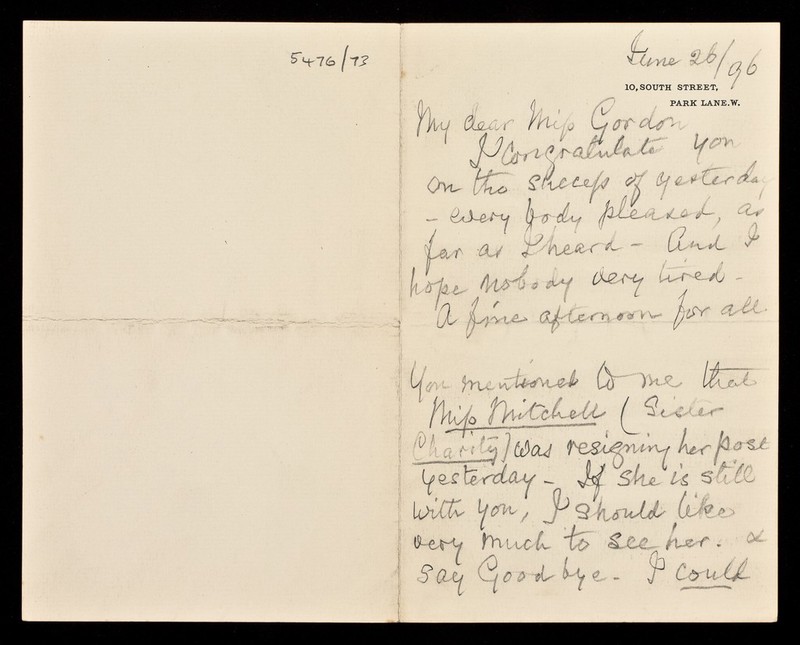 5476/73
June 26/96
10, SOUTH STREET,
PARK LANE. W.
My dear Miss Gordon
I congratulate you
on the success of yesterday
- every body pleased, as
far as I heard - And I
hope nobody very tired -
A fine afternoon for all.
You mentioned to me that
Miss Mitchell (Sister
Charity) was resigning her post
yesterday - If she is still
with you, I should like
very much to see her. &
say Good bye - I could